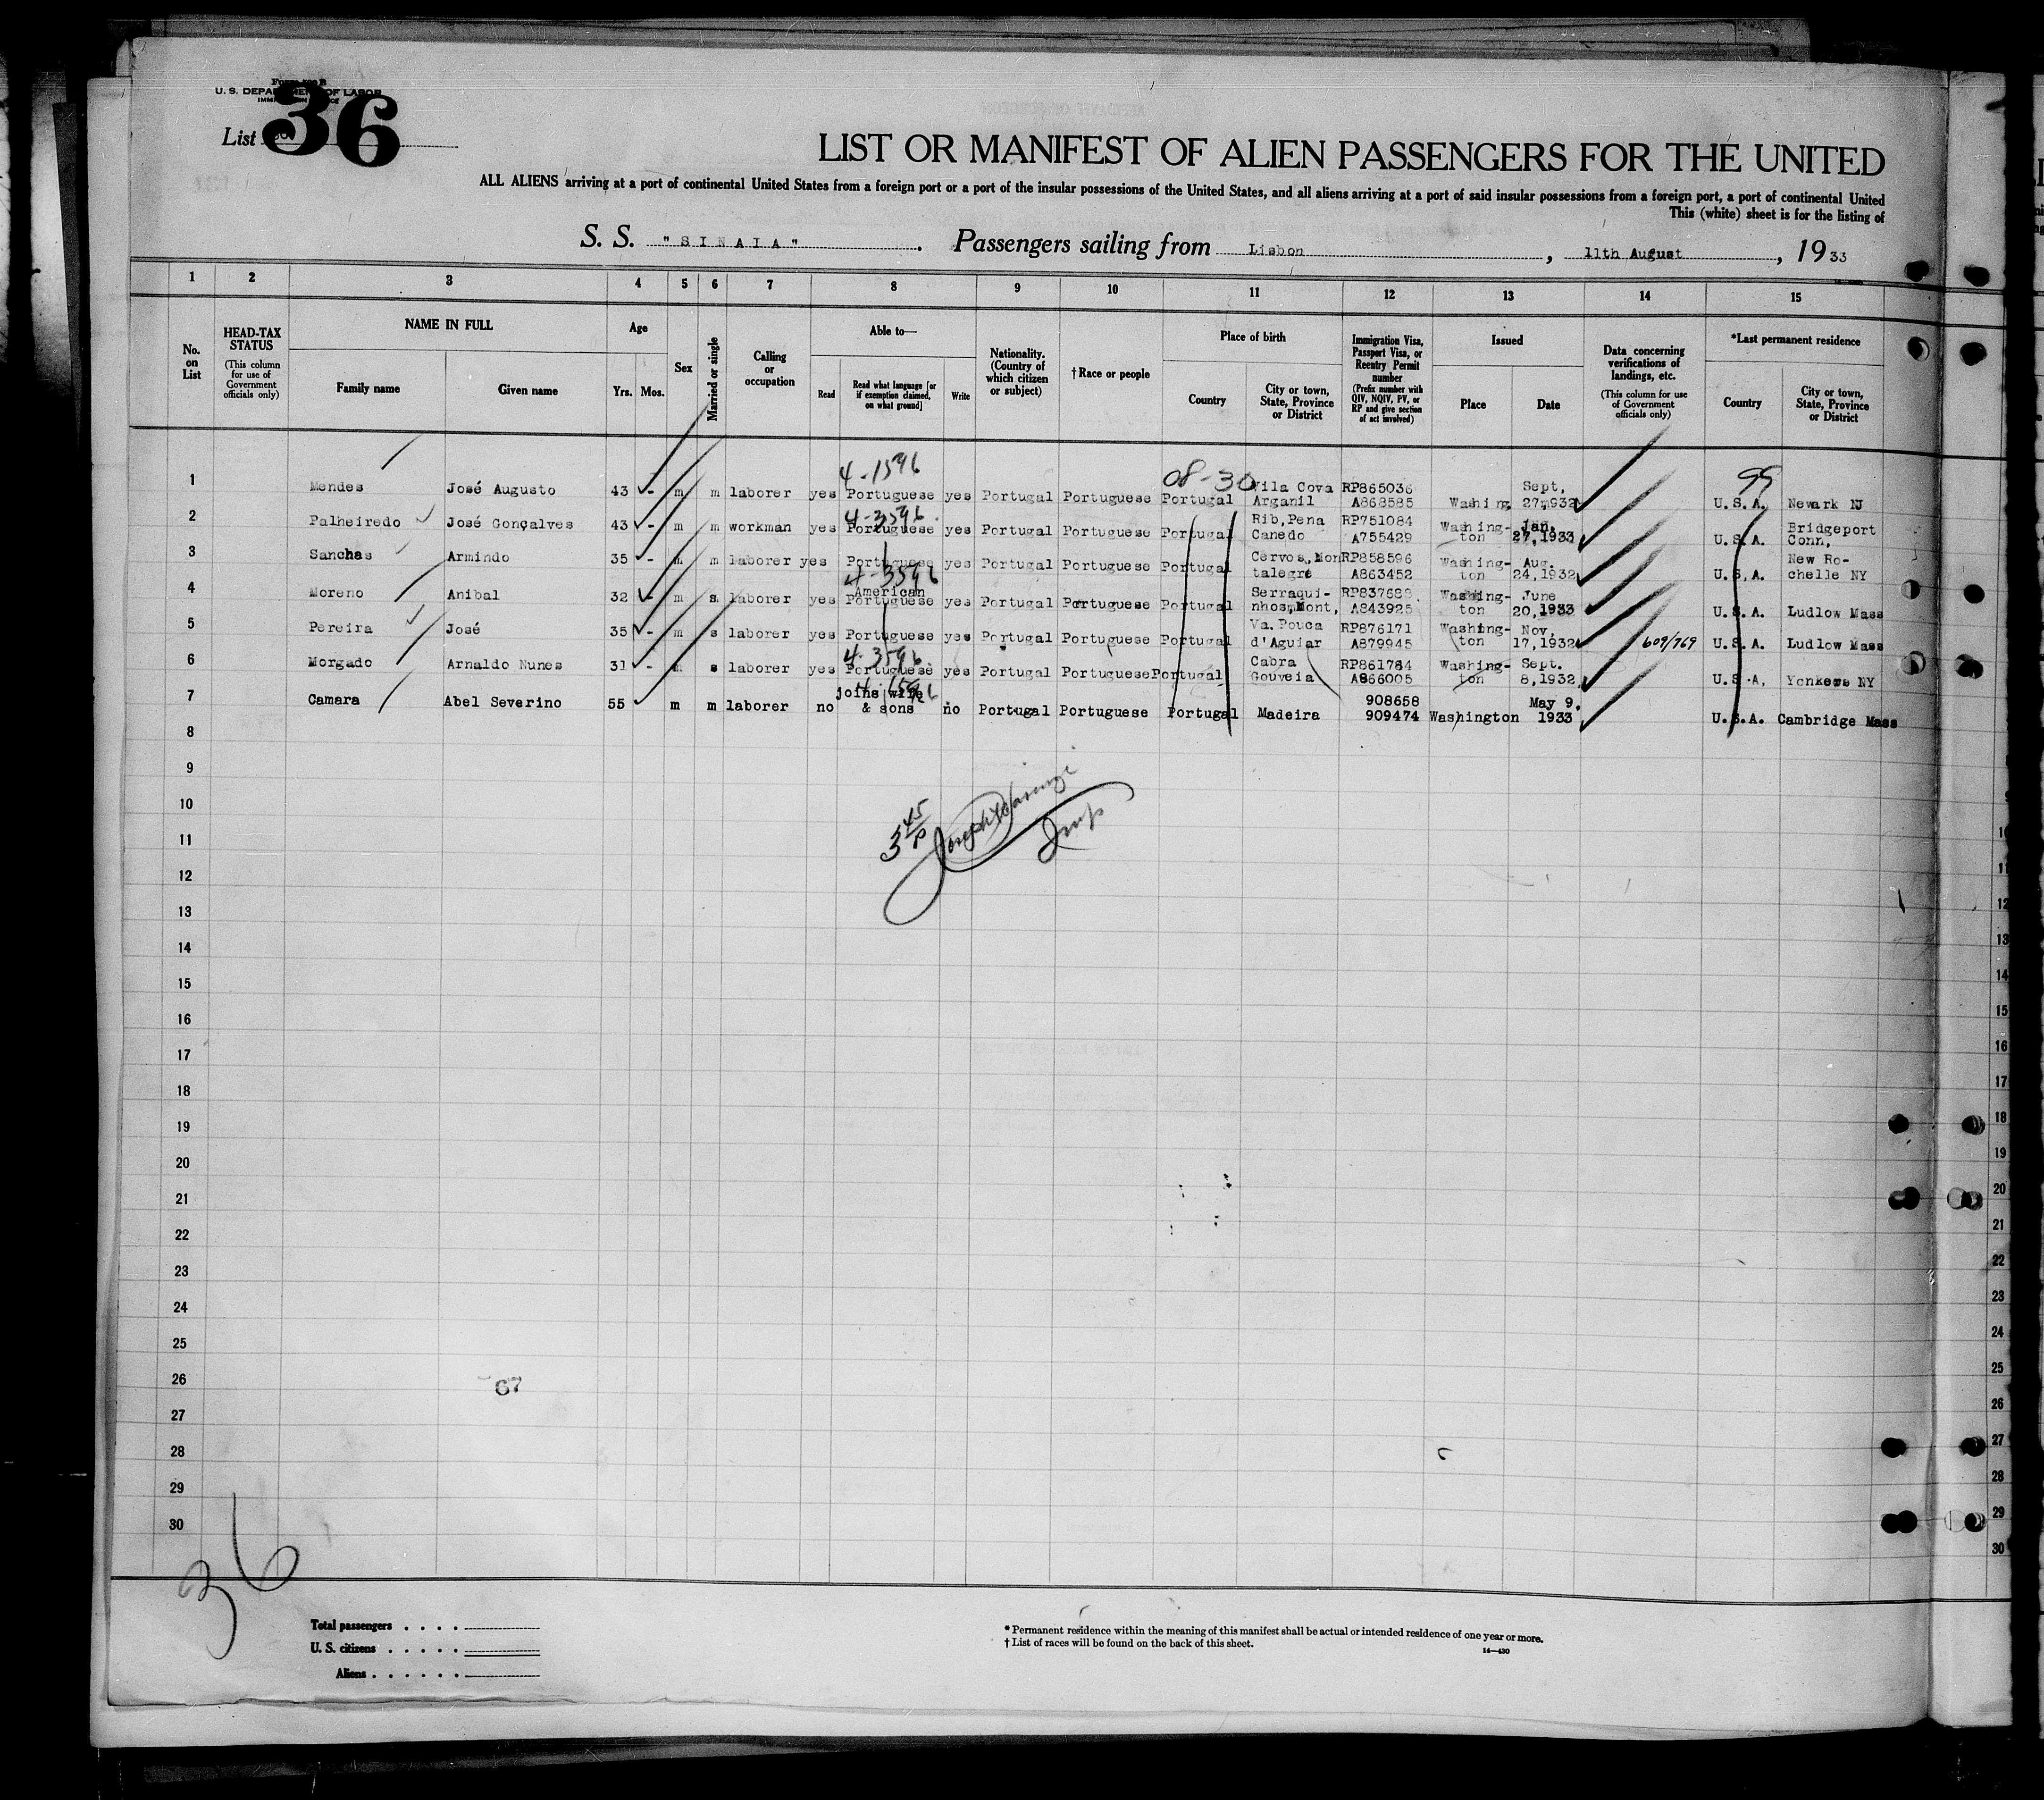 Form 500 B
U. S. DEPARTMENT OF LABOR
IMMIGRATION SERVICE
List 36
LIST OR MANIFEST OF ALIEN PASSENGERS FOR THE UNITED
ALL ALIENS arriving at a port of continental United States from a foreign port or a port of the insular possessions of the United States, and all aliens arriving at a port of said insular possessions from a foreign port, a port of continental United
This (white) sheet is for the listing of
S. S. "SINAIA". Passengers sailing from Lisbon, 11th August, 1933
1 2 3 4 5 6 7 8 9 10 11 12 13 14 15
No. on List
HEAD-TAX STATUS
(This column for use of Government officials only)
NAME IN FULL
Family name Given name
Age
Yrs. Mos.
Sex
Married or single
Calling or occupation
Able to—
Read
Read what language [or if exemption claimed, on what ground]
Write
Nationality. (Country of which citizen or subject)
†Race or people
Place of birth
Country
City or town, State, Province or District
Immigration Visa, Passport Visa, or Reentry Permit number
(Prefix number with QIV, NQIV, PV, or RP and give section of act involved)
Issued
Place Date
Data concerning verifications of landings, etc.
(This column for use of Government officials only)
*Last permanent residence
Country
City or town, State, Province or District
4-1596 08-30 99
1 Mendes José Augusto 43 - m m laborer yes Portuguese yes Portugal Portuguese Portugal Vila Cova Arganil RP865036 A868585 Washing Sept, 27,1932 U.S.A. Newark NJ
4-3596
2 Palheiredo José Gonçalves 43 - m m workman yes Portuguese yes Portugal Portuguese Portugal Rib,Pena Canedo RP751084 A755429 Washing-ton Jan. 27,1933 U.S.A. Bridgeport Conn,
3 Sanchas Armindo 35 - m m laborer yes Portuguese yes Portugal Portuguese Portugal Cervos,Montalegre RP858596 A863452 Washing-ton Aug. 24,1932 U.S.A. New Ro-chelle NY
4-3596
4 Moreno Anibal 32 - m s laborer yes American Portuguese yes Portugal Portuguese Portugal Serraqui-nhos,Mont, A843925 Washing-ton June 20,1933 U.S.A. Ludlow Mass
5 Pereira José 35 - m s laborer yes Portuguese yes Portugal Portuguese Portugal Va.Pouca d'Aguiar RP876171 A879945 Washing-ton Nov, 17,1932 609/769 U.S.A. Ludlow Mass
4-3596
6 Morgado Arnaldo Nunes 31 - m s laborer yes Portuguese yes Portugal Portuguese Portugal Cabra Gouveia RP861784 A866005 Washing-ton Sept. 8,1932 U.S.A, Yonkers NY
7 Camara Abel Severino 55 m m laborer no joins wife & sons no Portugal Portuguese Portugal Madeira 908658 909474 Washington May 9. 1933 U.S.A. Cambridge Mass
8
9
10
11
12
13
14
15
16
17
18
19
20
21
22
23
24
25
26
67
27
28
29
30
36
Total passengers
U. S. citizens
Aliens
*Permanent residence within the meaning of this manifest shall be actual or intended residence of one year or more.
†List of races will be found on the back of this sheet.
14—430